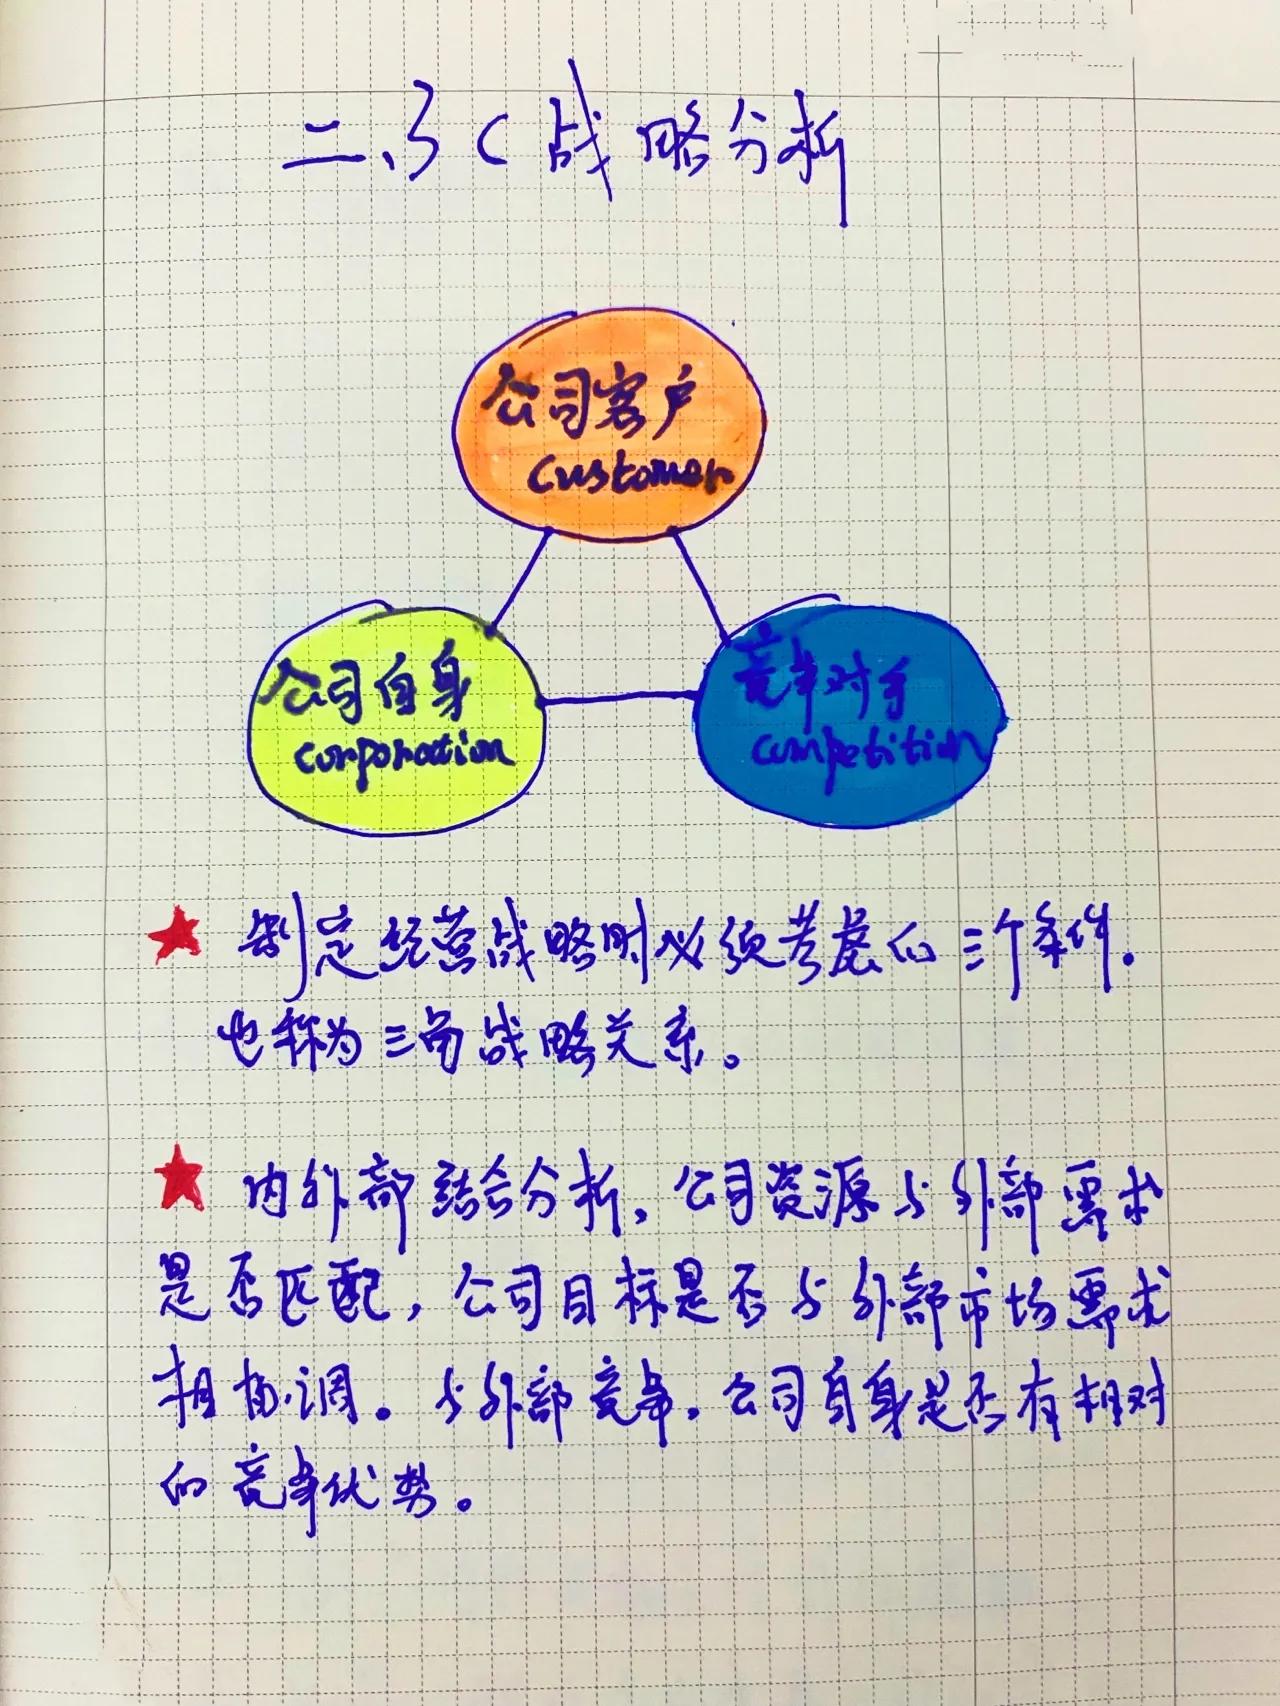 二、3C战略分析
公司客户
Customer
公司自身
corporation
竞争对手
competition
制定经营战略时必须考虑的三个条件.
也称为三角战略关系。
内外部结合分析,公司资源与外部需求
是否匹配,公司目标是否与外部市场需求
相协调。与外部竞争,公司自身是否有相对
的竞争优势。